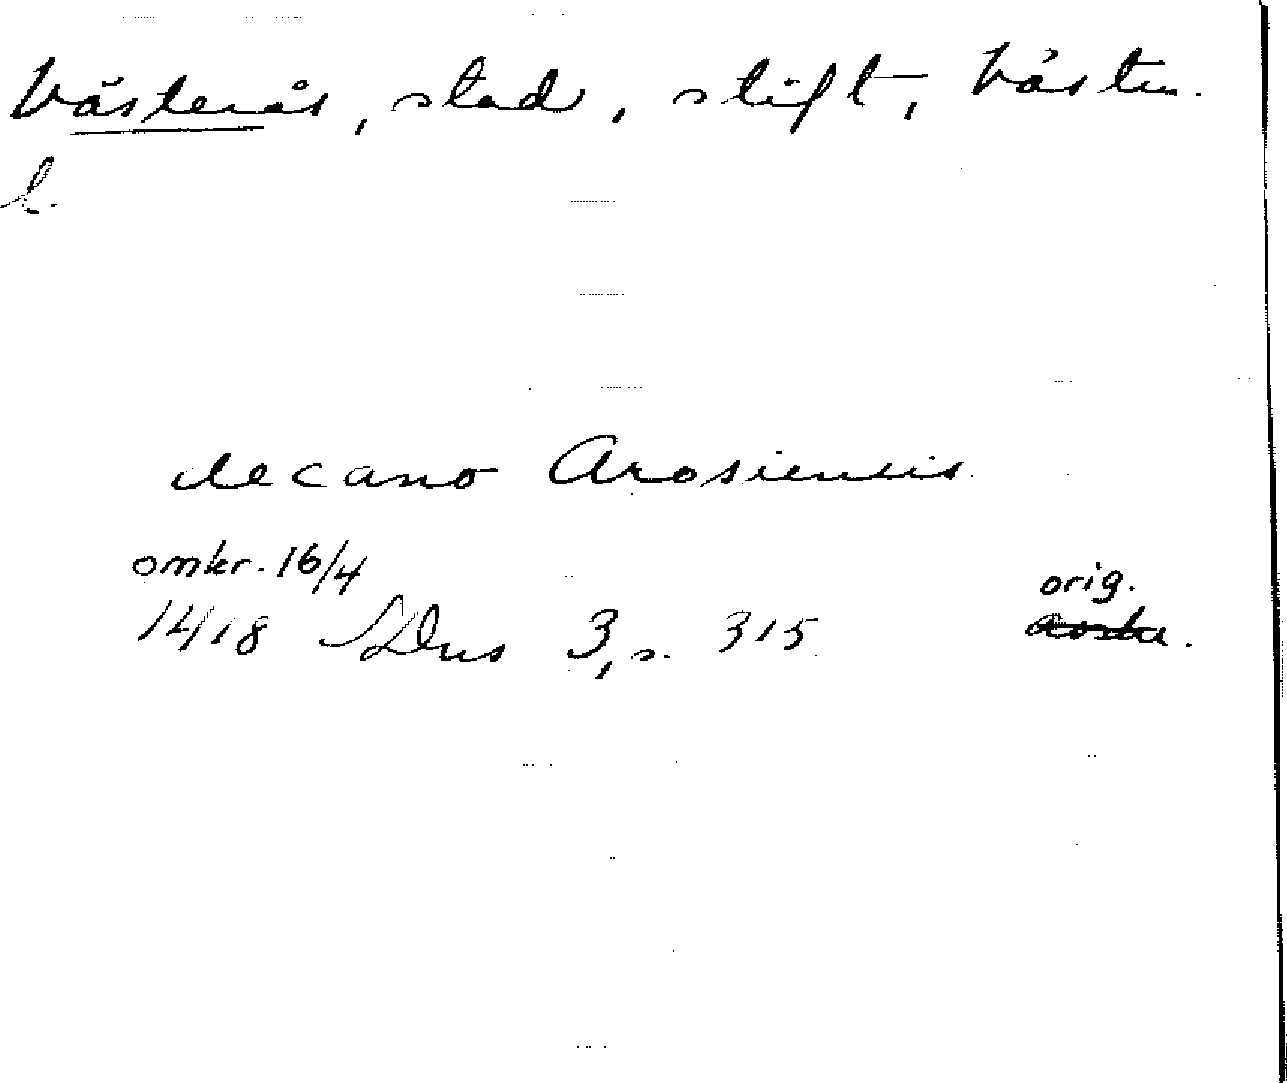 Västerås, stad, stift, Västm.
l.
decano Arosiensis
omkr. 16/4
1418 SDns 3, s. 315 orig.